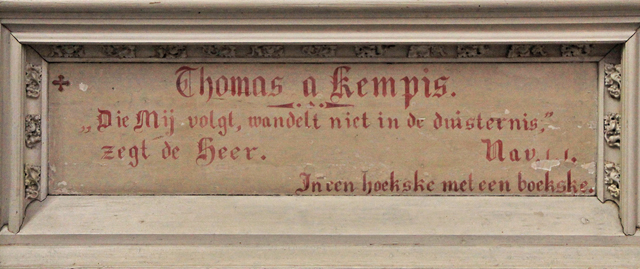 Thomas a Kempis.
„Die Mij volgt, wandelt niet in de duisternis,"
zegt de Heer. Nav. I. I.
In een hoekske met een boekske.